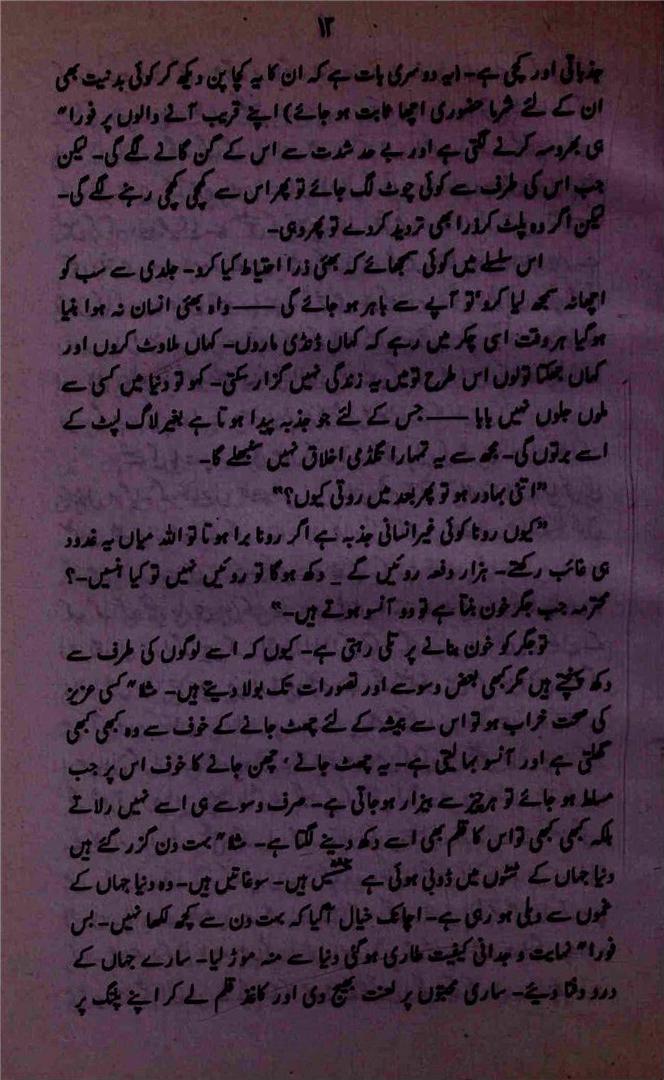 ۱۲
جذباتی اور کچی ہے۔ (یہ دوسری بات ہے کہ ان کا یہ کچا پن دیکھ کر کوئی بدنیت بھی
ان کے لئے شرما حضوری اچھا ثابت ہو جائے) اپنے قریب آنے والوں پر فورا"
ہی بھروسہ کرنے لگتی ہے اور بے حد شدت سے اس کے گن گانے لگے گی۔ لیکن
جب اس کی طرف سے کوئی چوٹ لگ جائے تو پھر اس سے کھچی کھچی رہنے لگے گی۔
لیکن اگر وہ پلٹ کر ذرا بھی تردید کر دے تو پھر وہی۔
اس سلسلے میں کوئی سمجھائے کہ بھئی ذرا احتیاط کیا کرو۔ جلدی سے سب کو
اچھا نہ سمجھ لیا کرو تو آپے سے باہر ہو جائے گی ——— واہ بھئی انسان نہ ہوا بنیا
ہوگیا ہر وقت اسی چکر میں رہے کہ کہاں ڈنڈی ماروں۔ کہاں ملاوٹ کروں اور
کہاں جھکتا تولوں اس طرح تو میں یہ زندگی نہیں گزار سکتی۔ کہو تو دنیا میں کسی سے
ملوں جلوں نہیں بابا ——— جس کے لئے جو جذبہ پیدا ہوتا ہے بغیر لاگ لپٹ کے
اسے برتوں گی۔ مجھ سے یہ تمہارا اخلاق نہیں سنبھلے گا۔
"اتنی بہادر ہو تو پھر بعد میں روتی کیوں؟"
"کیوں رونا کوئی غیر انسانی جذبہ ہے اگر رونا برا ہوتا تو اللہ میاں یہ غدود
ہی غائب رکھتے۔ ہزار دفعہ روئیں گے ۔ دکھ ہوگا تو روئیں نہیں تو کیا ہنسیں۔؟
محترمہ جب جگر خون بنتا ہے تو دو آنسو ہوتے ہیں۔"
تو جگر کو خون بنانے پر تلی رہتی ہے۔ کیوں کہ اسے لوگوں کی طرف سے
دکھ پہنچتے ہیں مگر کبھی بعض وسوسے اور تصورات تک ہولا دیتے ہیں۔ مثلا" کسی عزیز
کی صحت خراب ہو تو اس سے ہمیشہ کے لئے چھٹ جانے کے خوف سے وہ کبھی کبھی
گھلتی ہے اور آنسو بہا لیتی ہے۔ یہ چھٹ جانے، چھن جانے کا خوف اس پر جب
مسلط ہو جائے تو ہر چیز سے بیزار ہو جاتی ہے۔ صرف وسوسے ہی اسے نہیں رلاتے
بلکہ کبھی کبھی تو اس کا قلم بھی اسے دکھ دینے لگتا ہے۔ مثلا" بہت دن گزر گئے ہیں
دنیا جہاں کے میں ڈوبی ہوئی ہے ہیں۔ سوغاتیں ہیں۔ وہ دنیا جہاں کے
غموں سے دبلی ہو رہی ہے۔ اچانک خیال آگیا کہ بہت دن سے کچھ لکھا نہیں۔ بس
فورا" نہایت وجدانی کیفیت طاری ہوگئی دنیا سے منہ موڑ لیا۔ سارے جہاں کے
درد دفنا دیئے۔ ساری محبتوں پر لعنت بھیج دی اور کاغذ قلم لے کر اپنے پلنگ پر